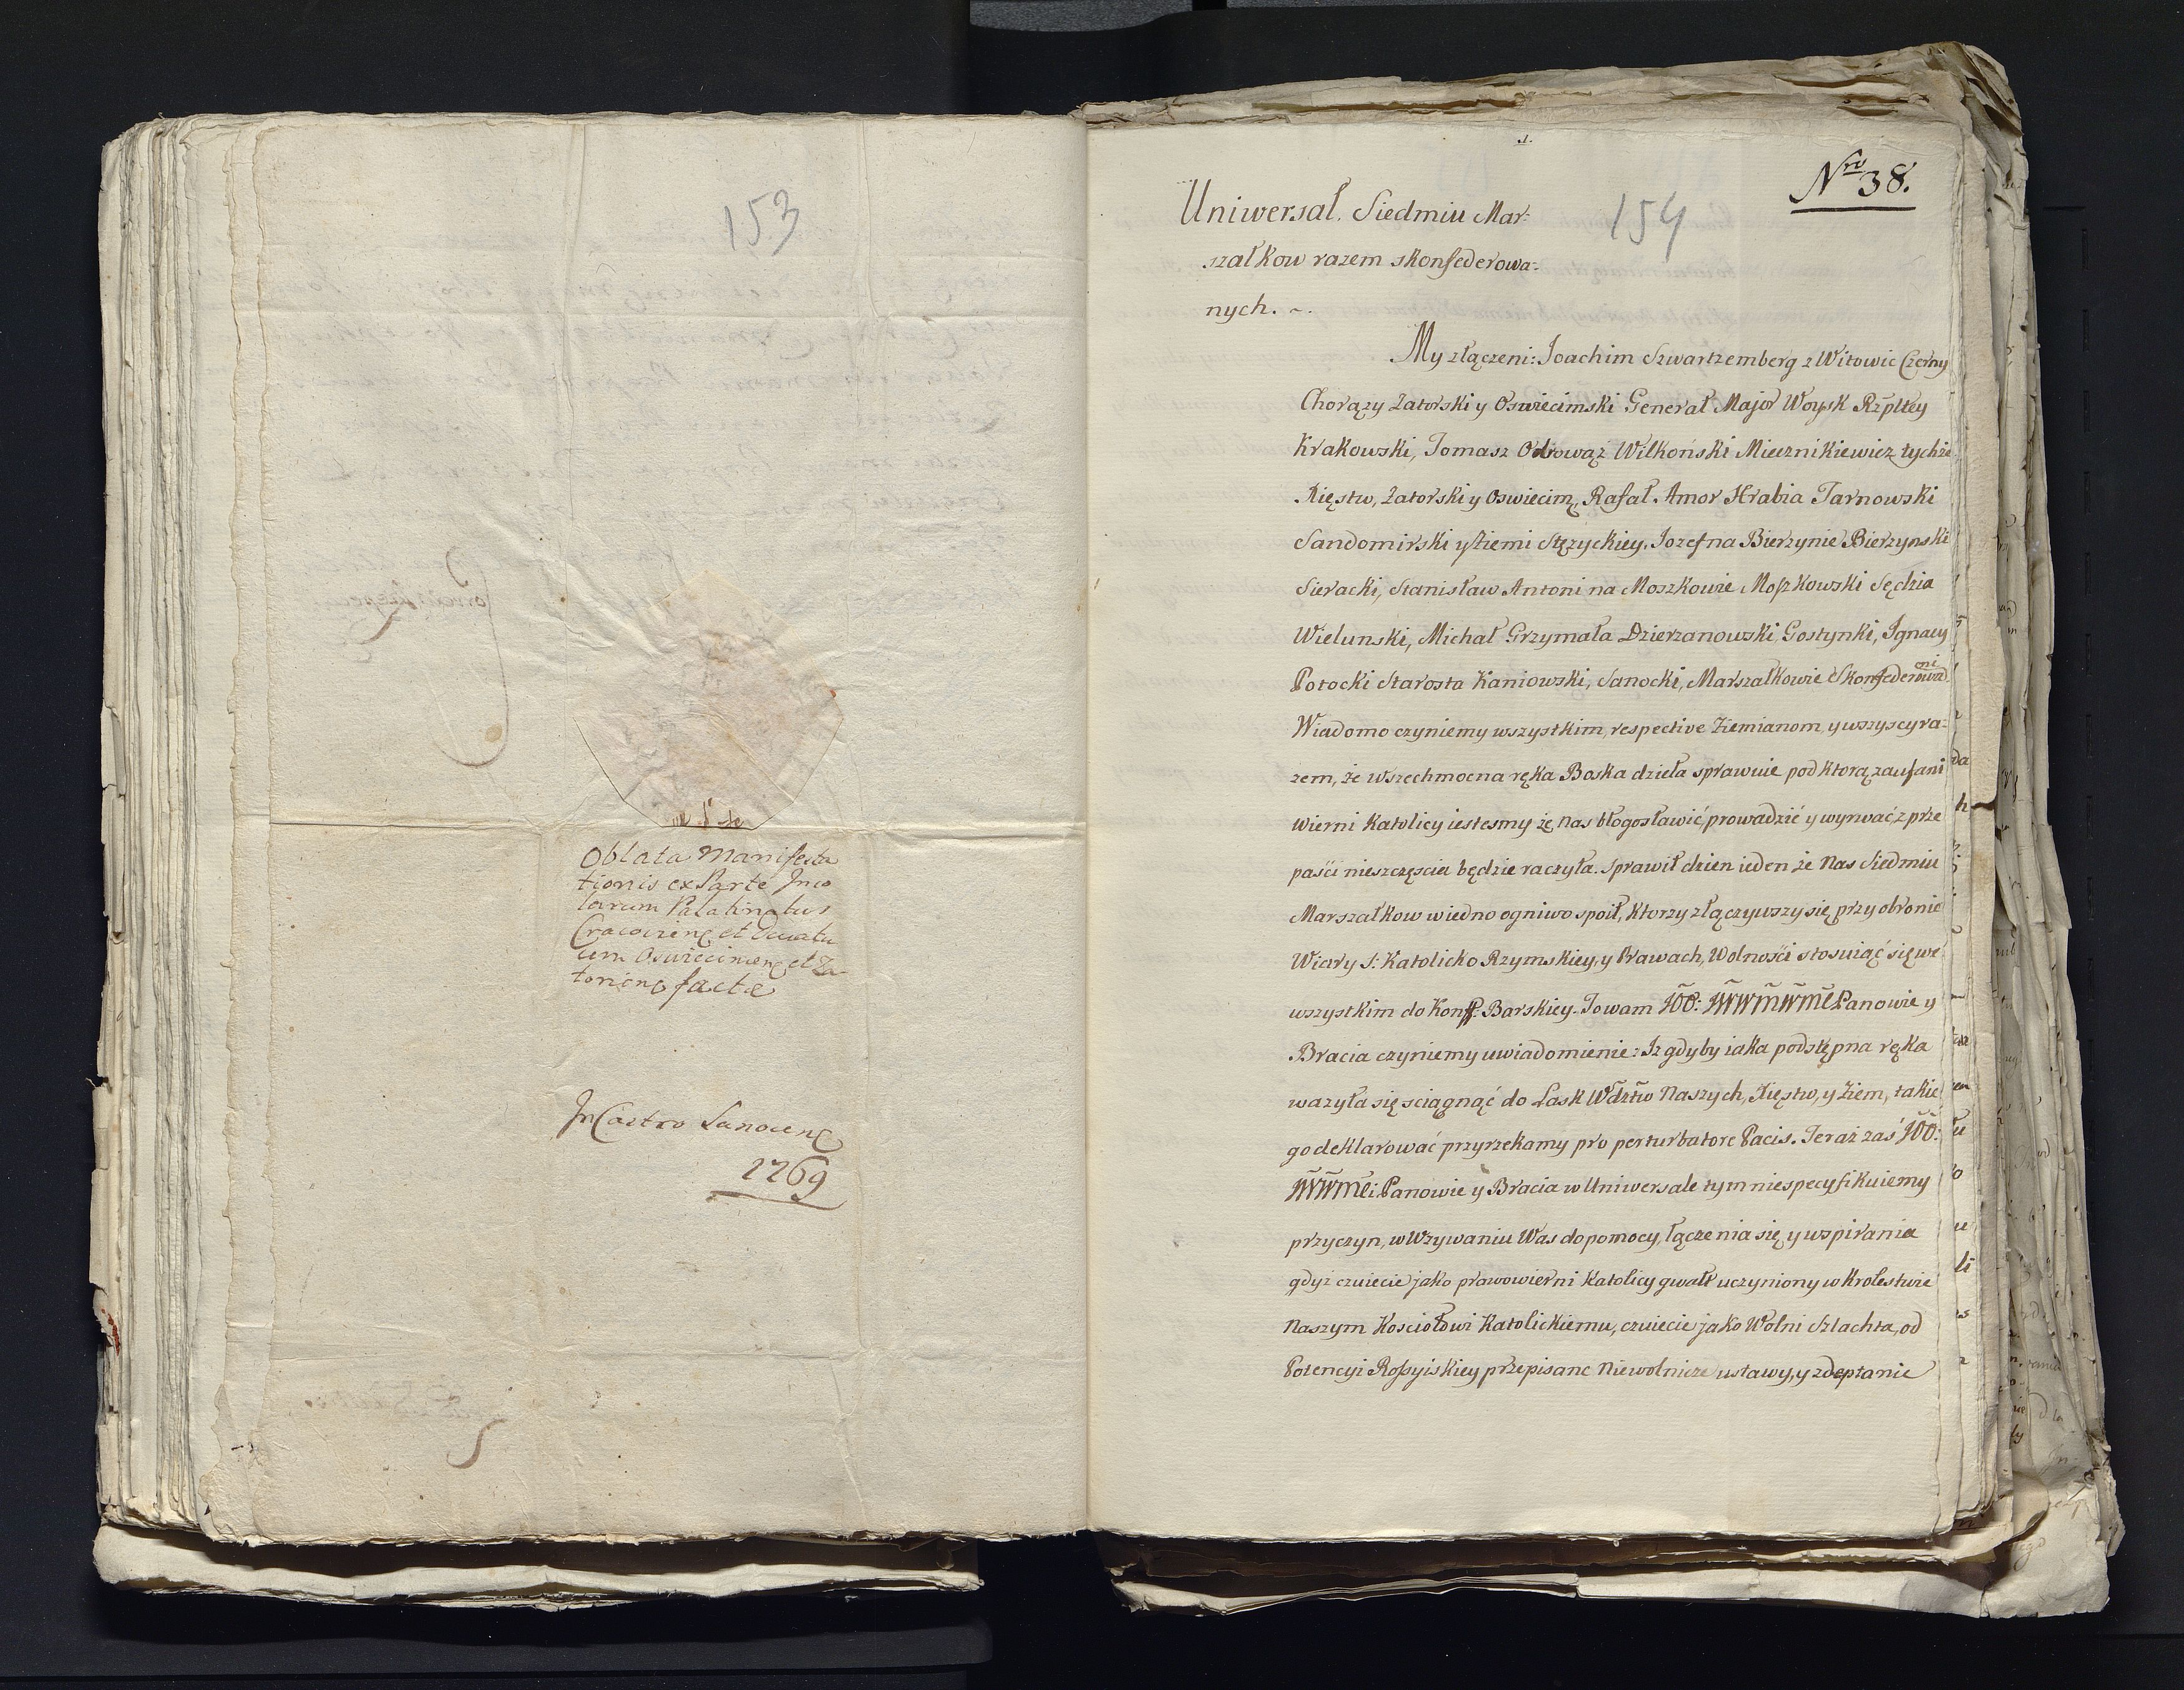 153
Oblata Manifesta
tionis ex Parte Inco
larum Palatinatus
Cracovienẽ et Ducatu
um Oswiecimenẽ et Za-
torienẽ factæ
In Castro Sanocenẽ
1769
1.
Nro 38.
154
Uniwersał. Siedmiu Mar:
szałkow razem skonfederowa:
nych. ~.
My złączeni: Joachim Szwartzemberg z Witowic Czerny
Chorązy Zatorski y Oswiecimski Generał Major Woysk Rzpltey
Krakowski, Tomasz Odrowąż Wilkoński Miecznikiewicz tychże
Xięstw, Zatorski y Oswiecim, Rafał Amor Hrabia Tarnowski
Sandomirski y Ziemi Stężyckiey, Jozef na Bierzynie Bierzynski
Sieracki, Stanisław Antoni na Moszkowie Moszkowski Sędzia
Wielunski, Michał Grzymała Dzierzanowski Gostynki, Ignacy
Potocki Starosta Kaniowski, Sanocki, Marszałkowie Skonfederowani
Wiadomo czyniemy wszystkim, respective Ziemianom, y wszyscy ra:
zem, że wszechmocna ręka Boska dzieła sprawuie pod ktorą zaufani
wierni Katolicy iestesmy że nas błogosławić, prowadzić y wyrwać z prze
paści nieszczęscia będzie raczyła. Sprawił dzien ieden że Nas Siedmiu
Marszałkow wiedno ogniwo spoił, ktorzy złączywszy się przy obronie
Wiary S: Katolicko Rzymskiey, y Prawach, Wolności stosuiąć się we
wszystkim do Konf: Barskiey. To wam JOO: JWWmWmć Panowie y
Bracia czyniemy uwiadomienie: Iz gdyby iaka podstępna ręka
wazyła się sciągnąć do Lask Wdztw Naszych, Xięstw, y Ziem, takie
go deklarować przyrzekamy pro perturbatore Pacis. Teraz zaś JOO:
JWWmć: Panowie y Bracia w Uniwersale tym niespecyfikuiemy
przyczyn, w Wzywaniu Was do pomocy, łączenia się y wspirania
gdyż czuiecie jako prawowierni Katolicy gwałt uczyniony w Krolestwie
Naszym Kosciołowi Katolickiemu, czuiecie jako Wolni Szlachta, od
Potencyi Rossyiskiey przepisane Niewolnicze ustawy, y zdeptanie